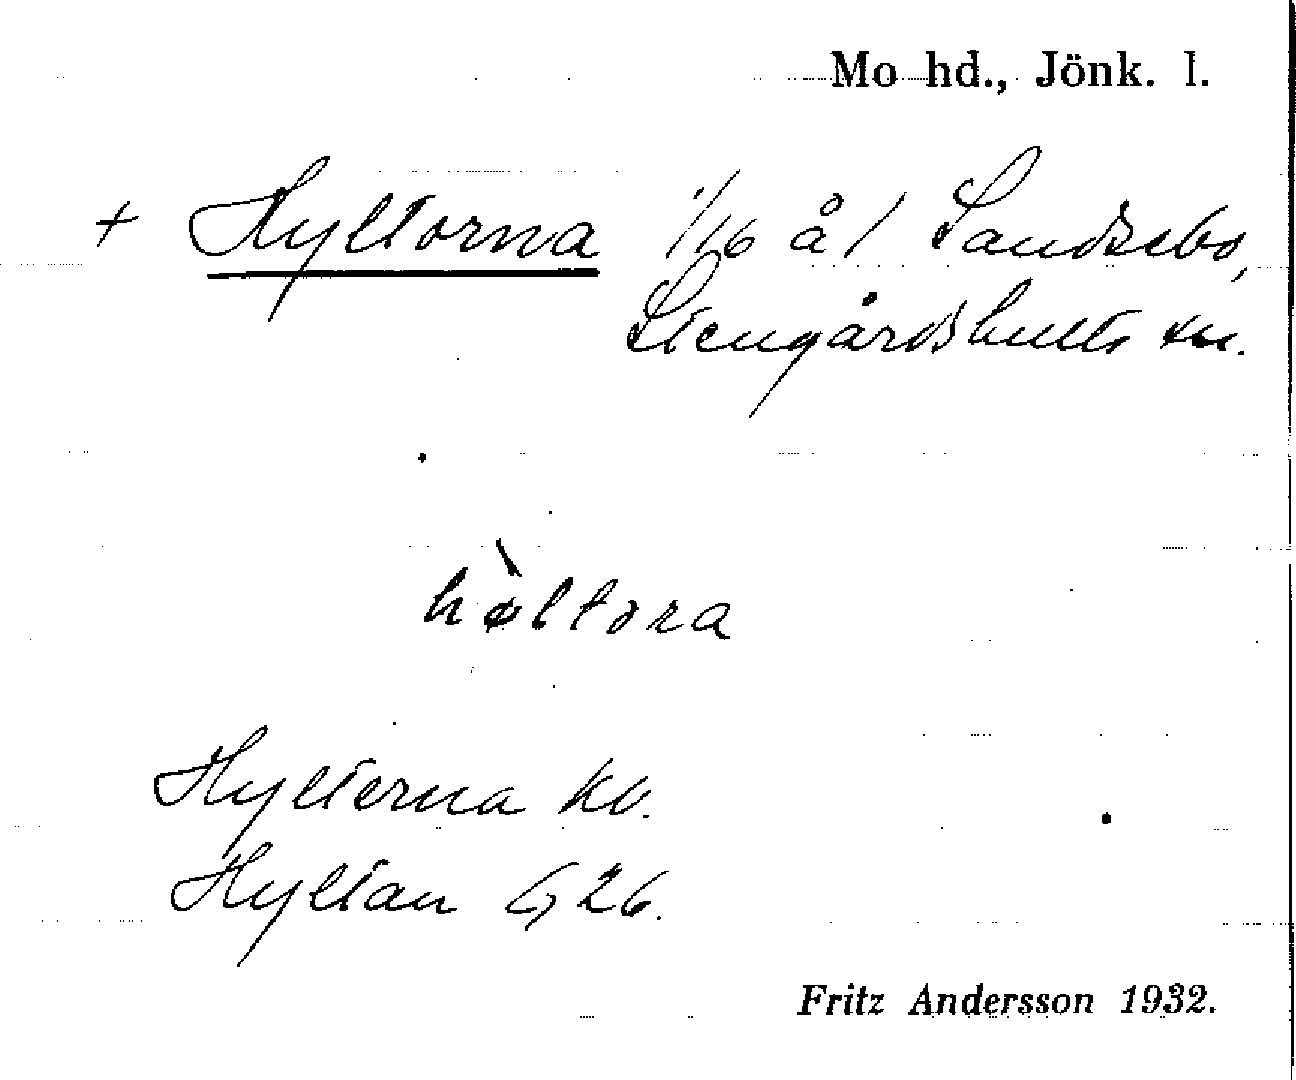 Mo hd., Jönk. l.
+ Hyltorna 1/16 å 1 Sandsebo,
Stengårdshults sn.
hø̀ltora
Hylterna kv.
Hyltan G 26.
Fritz Andersson 1932.